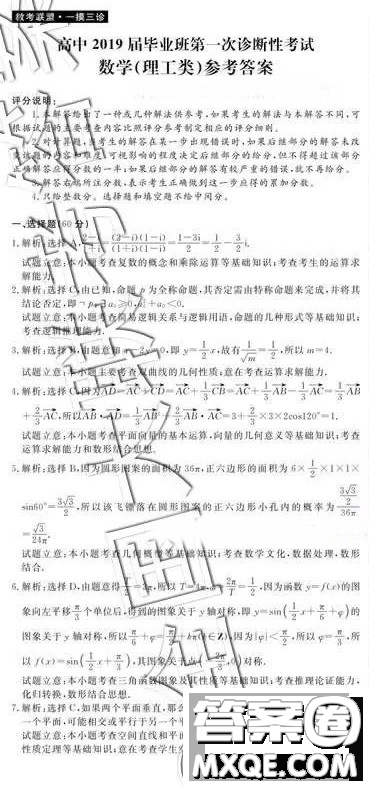 教考联盟·一摸三诊
高中 2019 届毕业班第一次诊断性考试
数学(理工类)参考答案
评分说明:
1.本解答给出了一或几种解法供参考,如果考生的解法与本解答不同,可
根据试题的主要考查内容比照评分参考制定相应的评分细则。
2.对计算题,当考生的解答在某一步出现错误时,如果后继部分的解答未改
变该题的内容和难度,可视影响的程度决定后继部分的给分,但不得超过该部分
正确解答应得分数的一半;如果后继部分的解答有较严重的错误,就不再给分。
3.解答右端所注分数,表示考生正确做到这一步应得的累加分数。
4.只给整数分。选择题和填空题不给中间分。
一、选择题(60 分)
1.解析:选择 A, =(2-i)(1-i)/(1+i)(1-i)=1-3i/2=1/2-3/2 i.
试题立意:本小题考查复数的概念和乘除运算等基础知识;考查考生的运算求
解能力.
2.解析:选择 C,由已知,命题 p 为全称命题,其否定需由特称命题来完成,并将其
结论否定,即
试题立意:本小题考查简易逻辑关系与逻辑用语,命题的几种形式等基础知识;
考查逻辑推理能力.
3.解析:选择 由题意知 x-2y=0,即 y=1/2 x,故有 1/√m=1/2,所以 m=4.
试题立意:本小题主要考查双曲线的几何性质;意在考查运算求解能力.
4.解析:选择 因为 AD=AC+CD=AC+1/3 CB=AC+1/3 AB-1/3 AC=1/3 AB
+2/3 AC,所以 AB·AD=1/3 AB²+2/3 AB·AC=3+2/3×3×2cos120°=1.
试题立意:本小题考查平面向量的基本运算,向量的几何意义等基础知识;考查
运算求解能力和数形结合思想.
5.解析:选择 B,因为圆形图案的面积为 36π,正六边形的面积为 6×1/2×1×1×
sin60°=3√3/2,所以该飞镖落在圆形图案的正六边形小孔内的概率为 3√3/2/36π
=√3/24π.
试题立意:本小题考查几何概型等基础知识;考查数学文化,数据处理,数形
结合.
6.解析:选择 D,由题意得 所以 T=4π,ω=2π/T=1/2,因为函数 y=f(x)的图
象向左平移 π/3 个单位后,得到的图象关于 y 轴对称,即 y=sin(1/2 x+π/6+φ)的
图象关于 y 轴对称,所以 π/6+φ=π/2+kπ(k∈Z),因为|φ|<π/2,所以 φ=π/3,所
以 f(x)=sin(1/2 x+π/3),其图象关于点(-2π/3,0)对称.
试题立意:本小题考查三角函数图象及其性质等基础知识;考查推理论证能力,
化归转换,数形结合思想.
7.解析:选择 C,如果两个平面垂直,那
一个平面,可能相交或平行于另一个平
试题立意:本小题考查空间直线和平面
性质定理等基础知识;意在考查学生
答案卷
MXEQE.COM